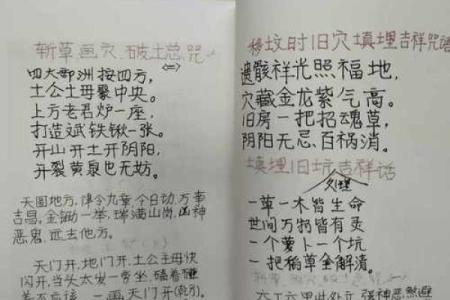 斩草画穴、破土总咒(二)
四大部洲按四方,
土公土母聚中央。
上方老君炉一座,
打造斌铁锹一张。
开山开土开阴阳,
开裂黄泉也无妨。
天圆地方,律令九章,今日动,万事
吉昌,金锄一举,瑞满山岗,凶神
恶鬼,远去他方。
天门开,地门开,土公土母快
闪开,当头太岁一旁坐,
移坟时旧穴填埋吉祥咒语
遗骸祥光照福地,
穴藏金龙紫气高。
旧房一把招魂草,
阴阳无忌百祸消。
填埋旧坑吉祥话
又理
一草一木皆生命
世间万物皆有灵
一个萝卜一个坑
一把稻草全解清。